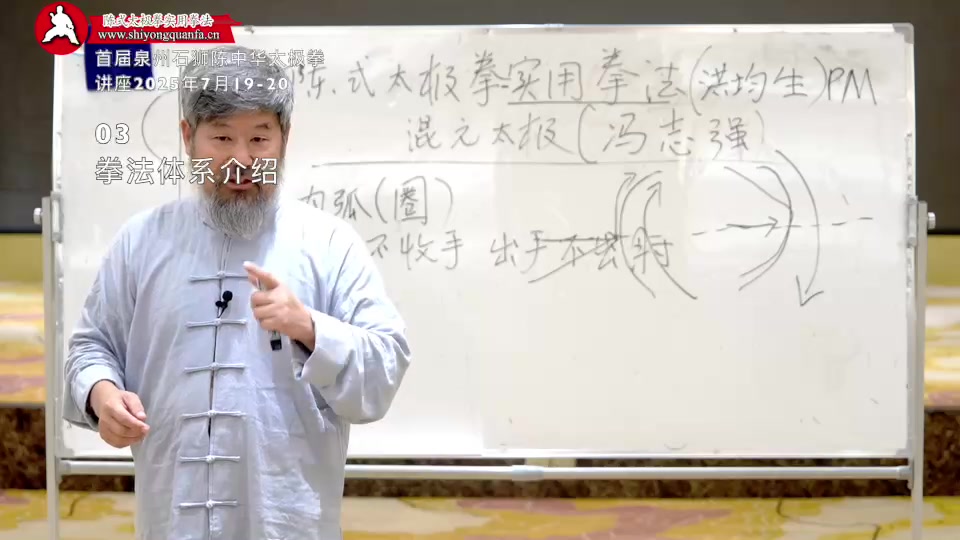 陈式太极拳实用拳法
www.shiyongquanfa.cn
首届泉州石狮陈中华太极拳
讲座2025年7月19-20
03
拳法体系介绍
陈式太极拳实用拳法(洪均生)PM
混元太极(冯志强)
内弧(圈)
不收手 出手不出肘